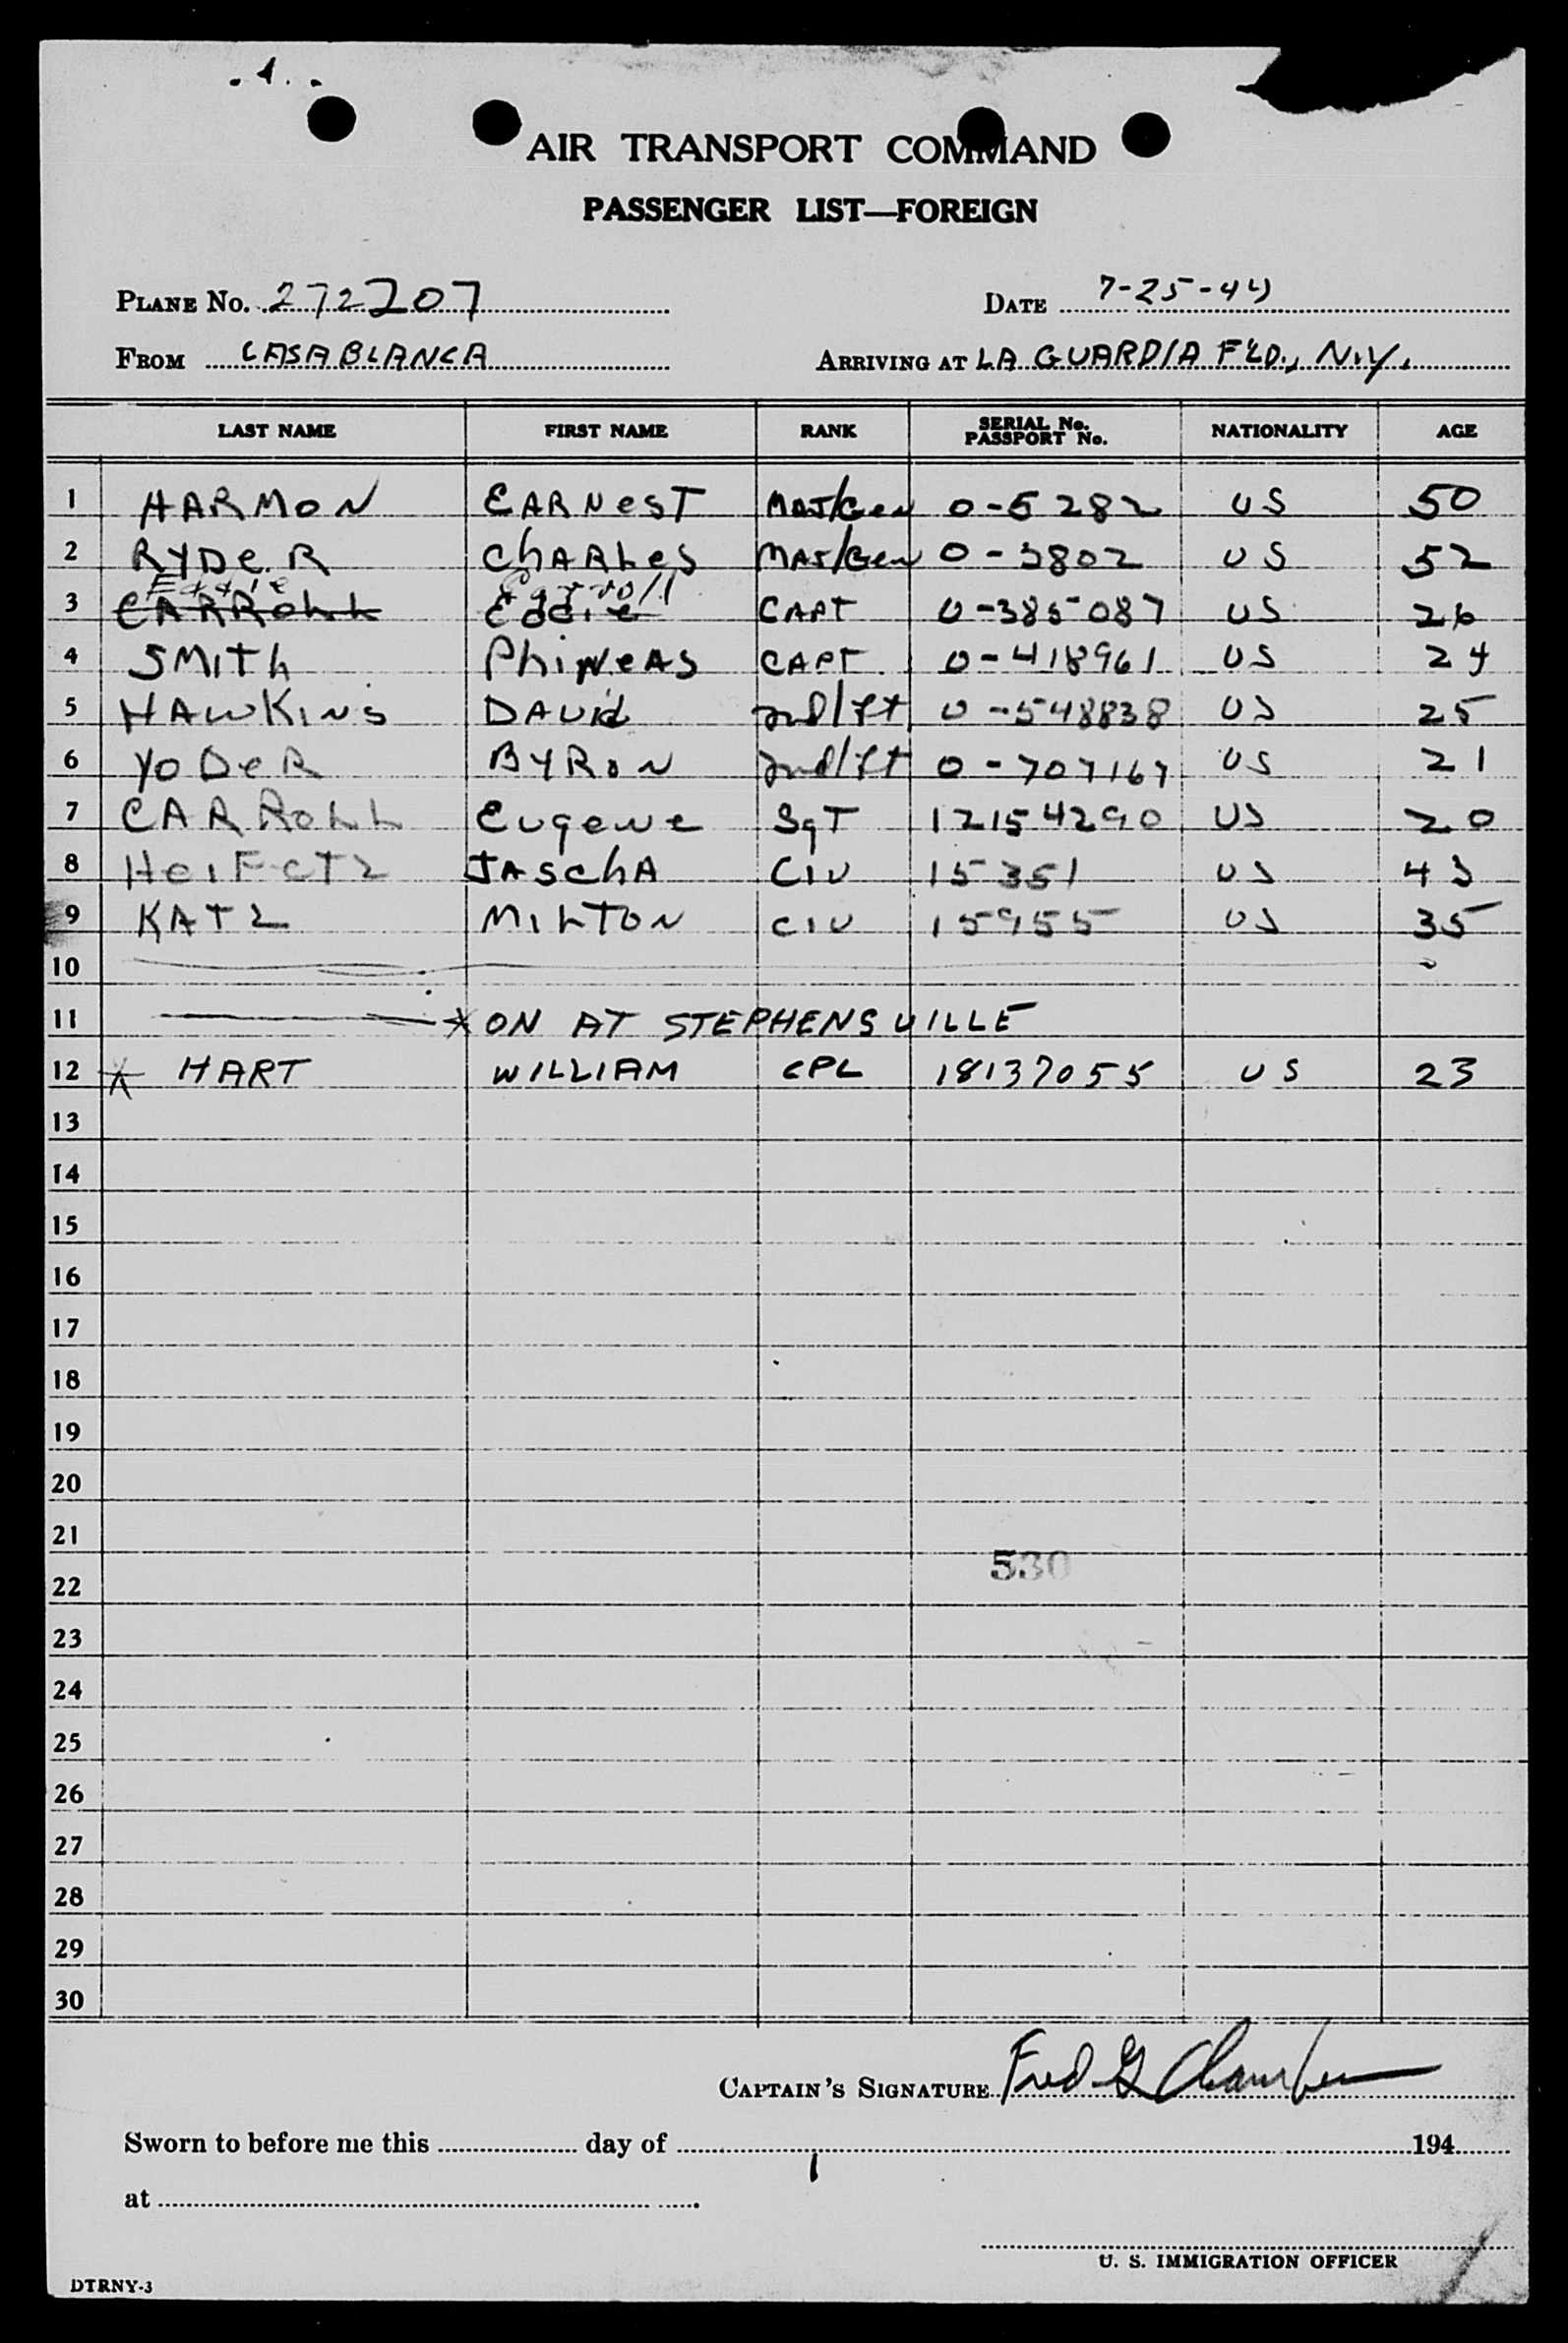 . 1 . .
AIR TRANSPORT COMMAND
PASSENGER LIST—FOREIGN
PLANE No. 272207 DATE 7-25-44
FROM CASABLANCA ARRIVING AT LA GUARDIA FLD., N.Y.
LAST NAME FIRST NAME RANK SERIAL No. PASSPORT No. NATIONALITY AGE
1 HARMON EARNEST MAJ/Gen 0-5282 US 50
2 RYDER CHARLES MAJ/Gen 0-3802 US 52
Eddie Carroll
3 CARROLL Eddie CAPT 0-385087 US 26
4 SMITH PHINEAS CAPT 0-418961 US 24
5 HAWKINS DAVID 2nd/Lt 0-548838 US 25
6 YODER BYRON 2nd/Lt 0-707167 US 21
7 CARROLL Eugene SgT 12154290 US 20
8 HeiFeTZ JASCHA CIV 15351 US 43
9 KATZ MILTON CIV 15955 US 35
10
11 * ON AT STEPHENSVILLE
12 * HART WILLIAM CPL 18137055 US 23
13
14
15
16
17
18
19
20
21
530
22
23
24
25
26
27
28
29
30
CAPTAIN'S SIGNATURE Fred G
Sworn to before me this day of 194
at
U. S. IMMIGRATION OFFICER
DTRNY-3